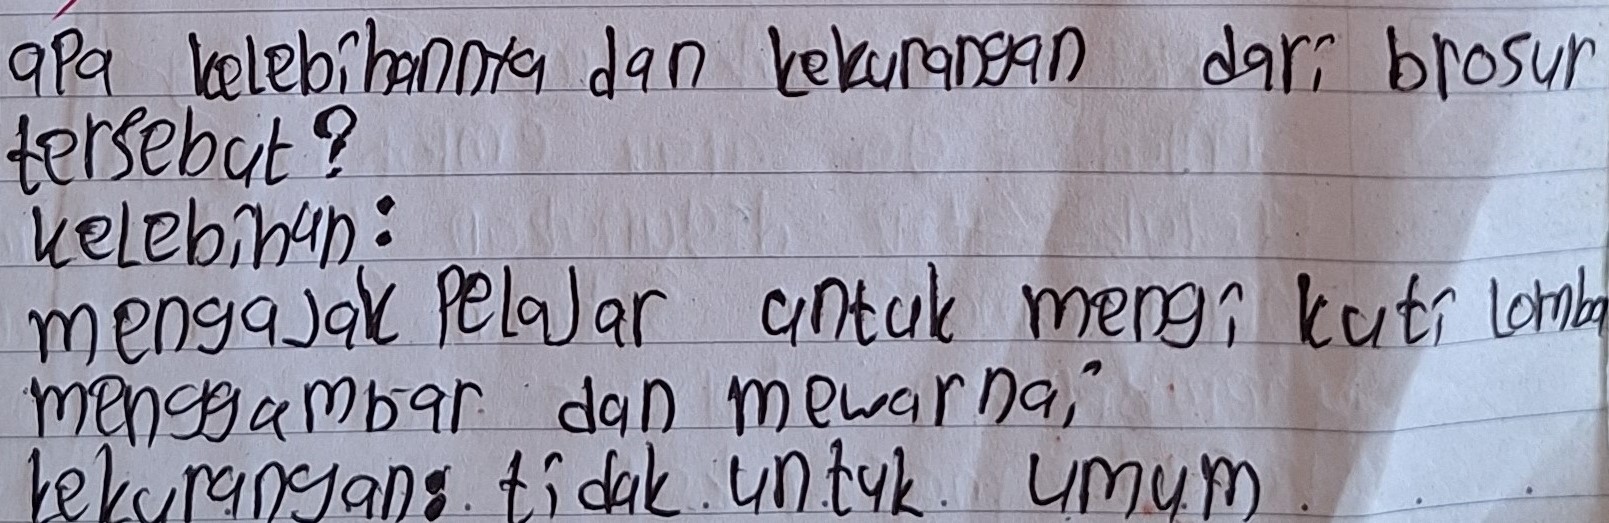 apa kelebihannya dan kekurangan dari brosur
tersebut?
kelebihan:
mengajak Pelajar untuk mengi kuti lomba
menggambar dan mewarnai
kekurangan: tidak untuk umum.